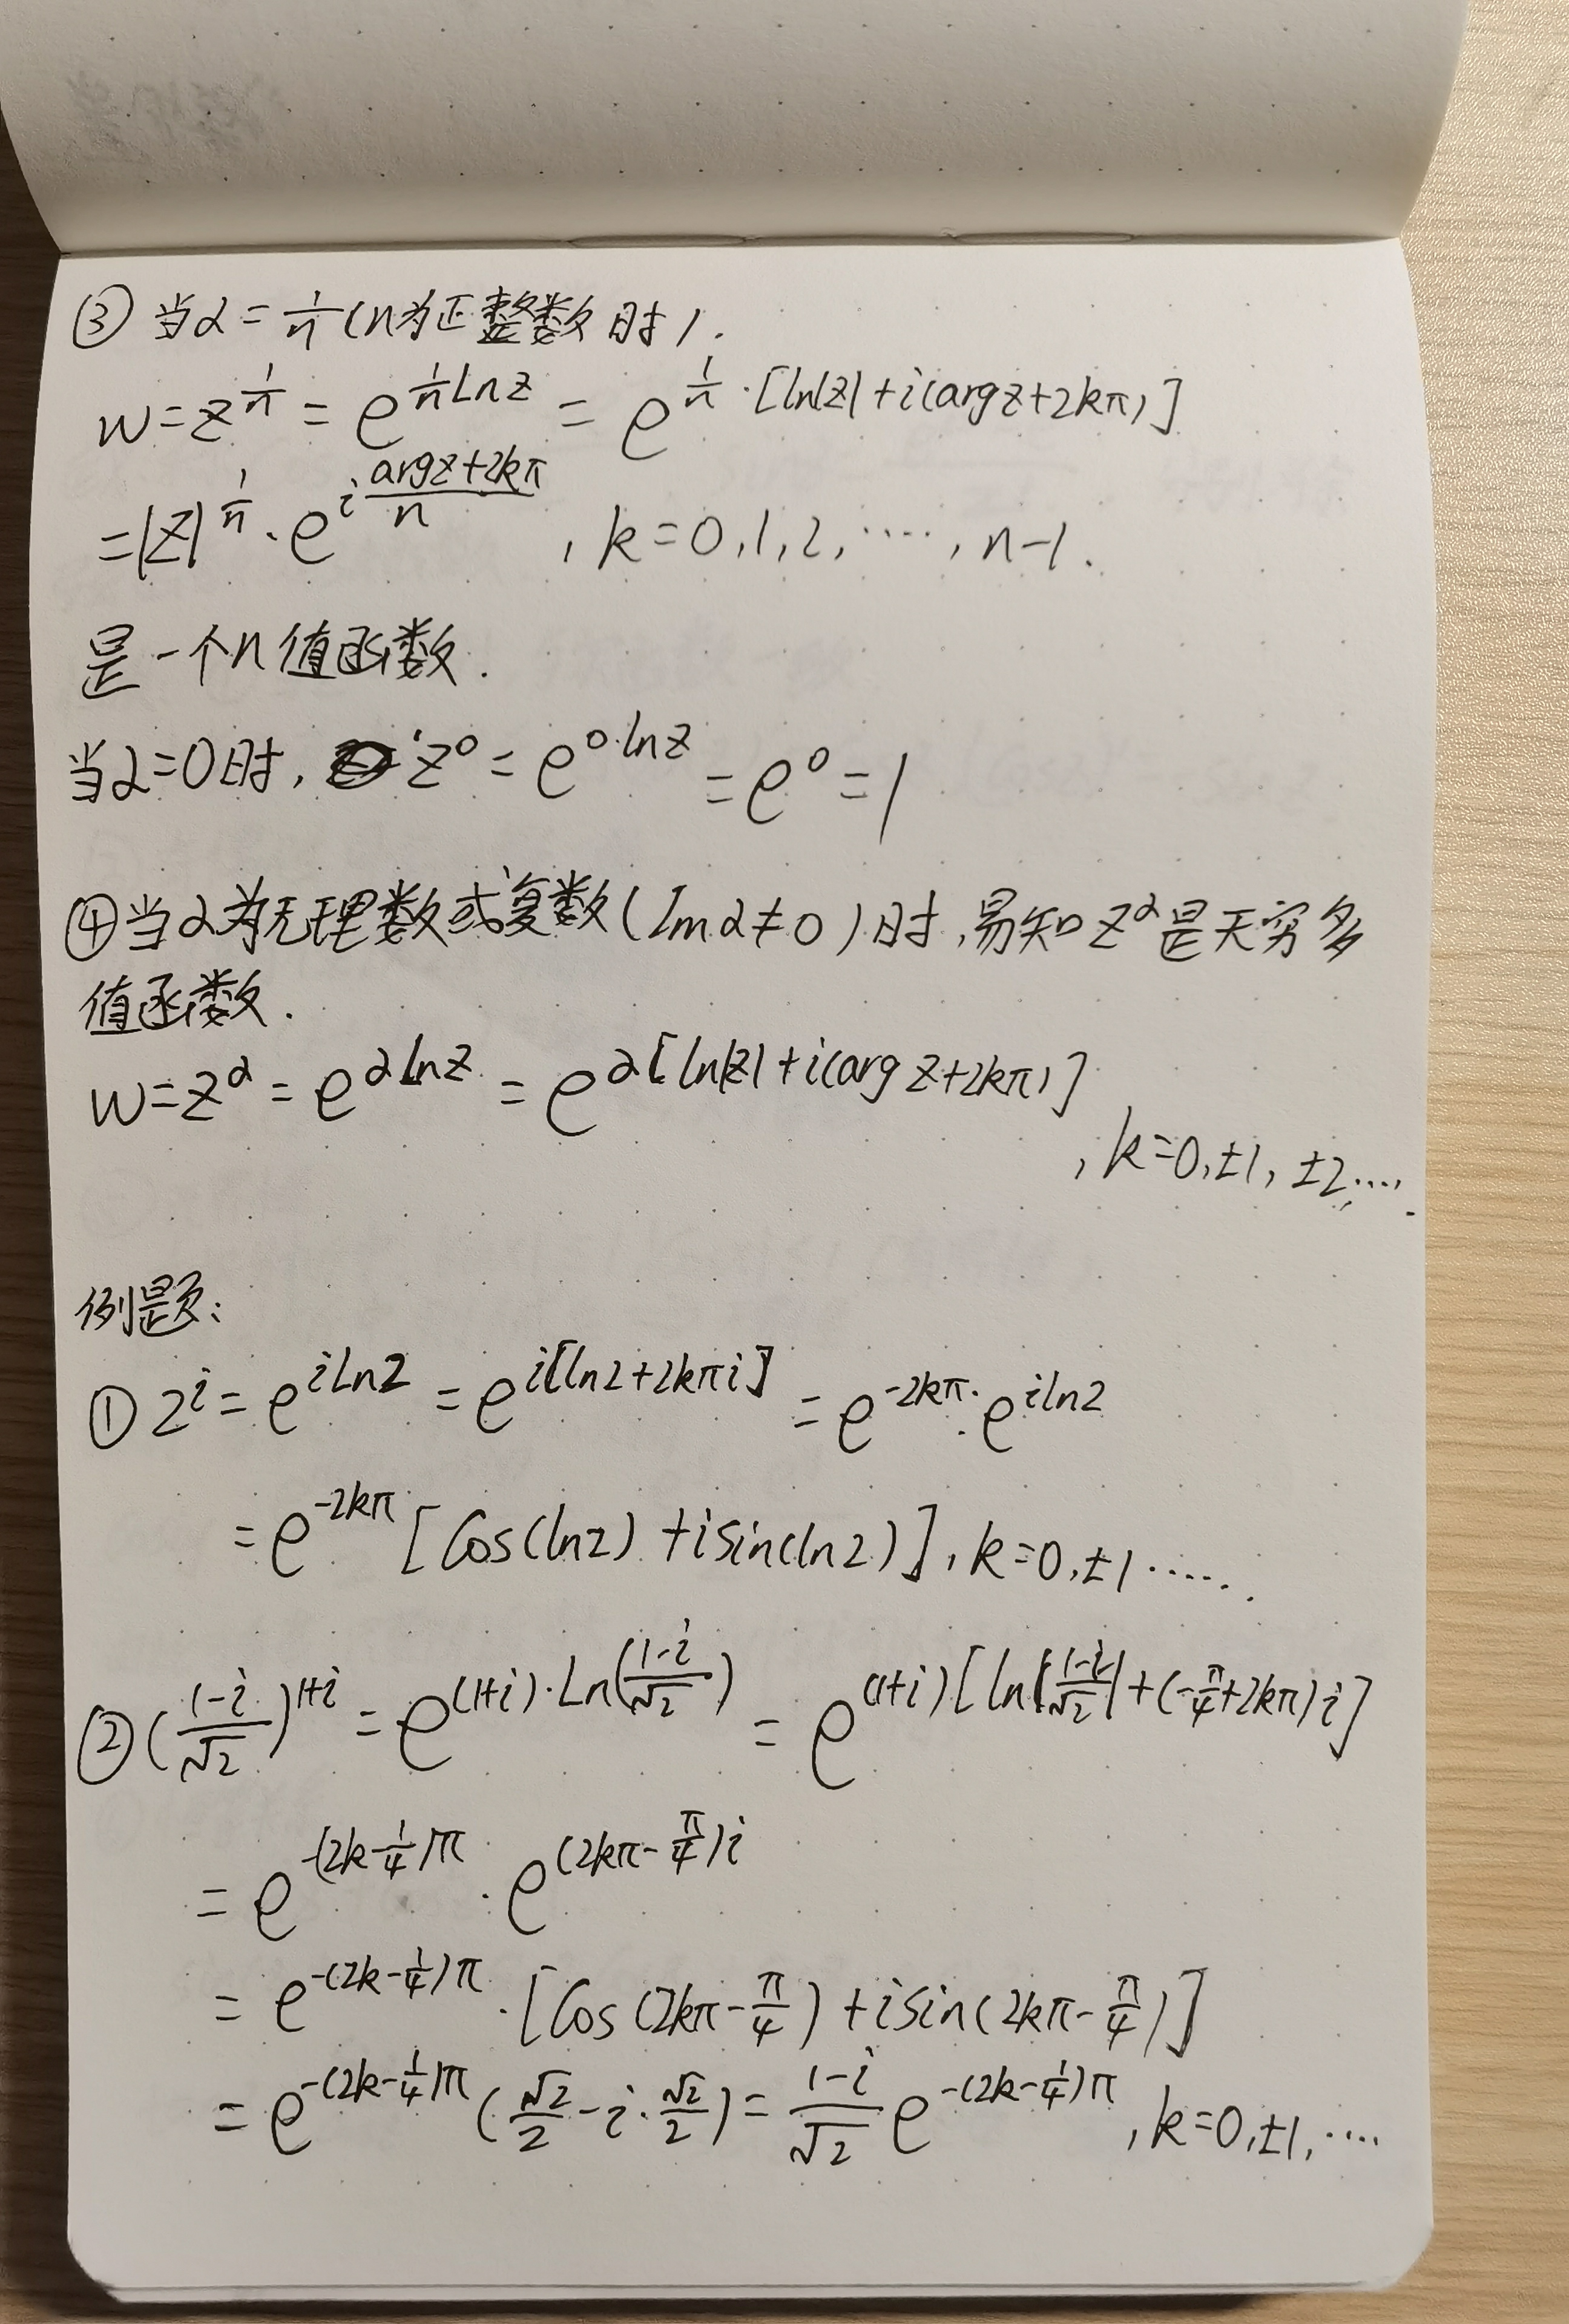 ③ 当α=1/n(n为正整数时).
w=z^{1/n}=e^{1/n Lnz}=e^{1/n·[ln|z|+i(argz+2kπ)]}
=|z|^{1/n}·e^{i (argz+2kπ)/n}, k=0,1,2,……,n-1.
是一个n值函数.
当α=0时, z^0=e^{0·lnz}=e^0=1
④当α为无理数或复数(Imα≠0)时,易知z^α是无穷多
值函数.
w=z^α=e^{αLnz}=e^{α[ln|z|+i(arg z+2kπ)]}
,k=0,±1,±2,….
例题:
① 2^i=e^{iLn2}=e^{i[ln2+2kπi]}=e^{-2kπ}·e^{iln2}
=e^{-2kπ}[Cos(ln2)+isin(ln2)],k=0,±1…….
②((1-i)/√2)^{1+i}=e^{(1+i)·Ln((1-i)/√2)}=e^{(1+i)[ln|(1-i)/√2|+(-π/4+2kπ)i]}
=e^{-(2k-1/4)π}·e^{(2kπ-π/4)i}
=e^{-(2k-1/4)π}·[Cos(2kπ-π/4)+isin(2kπ-π/4)]
=e^{-(2k-1/4)π}(√2/2-i·√2/2)=(1-i)/√2 e^{-(2k-1/4)π},k=0,±1,….